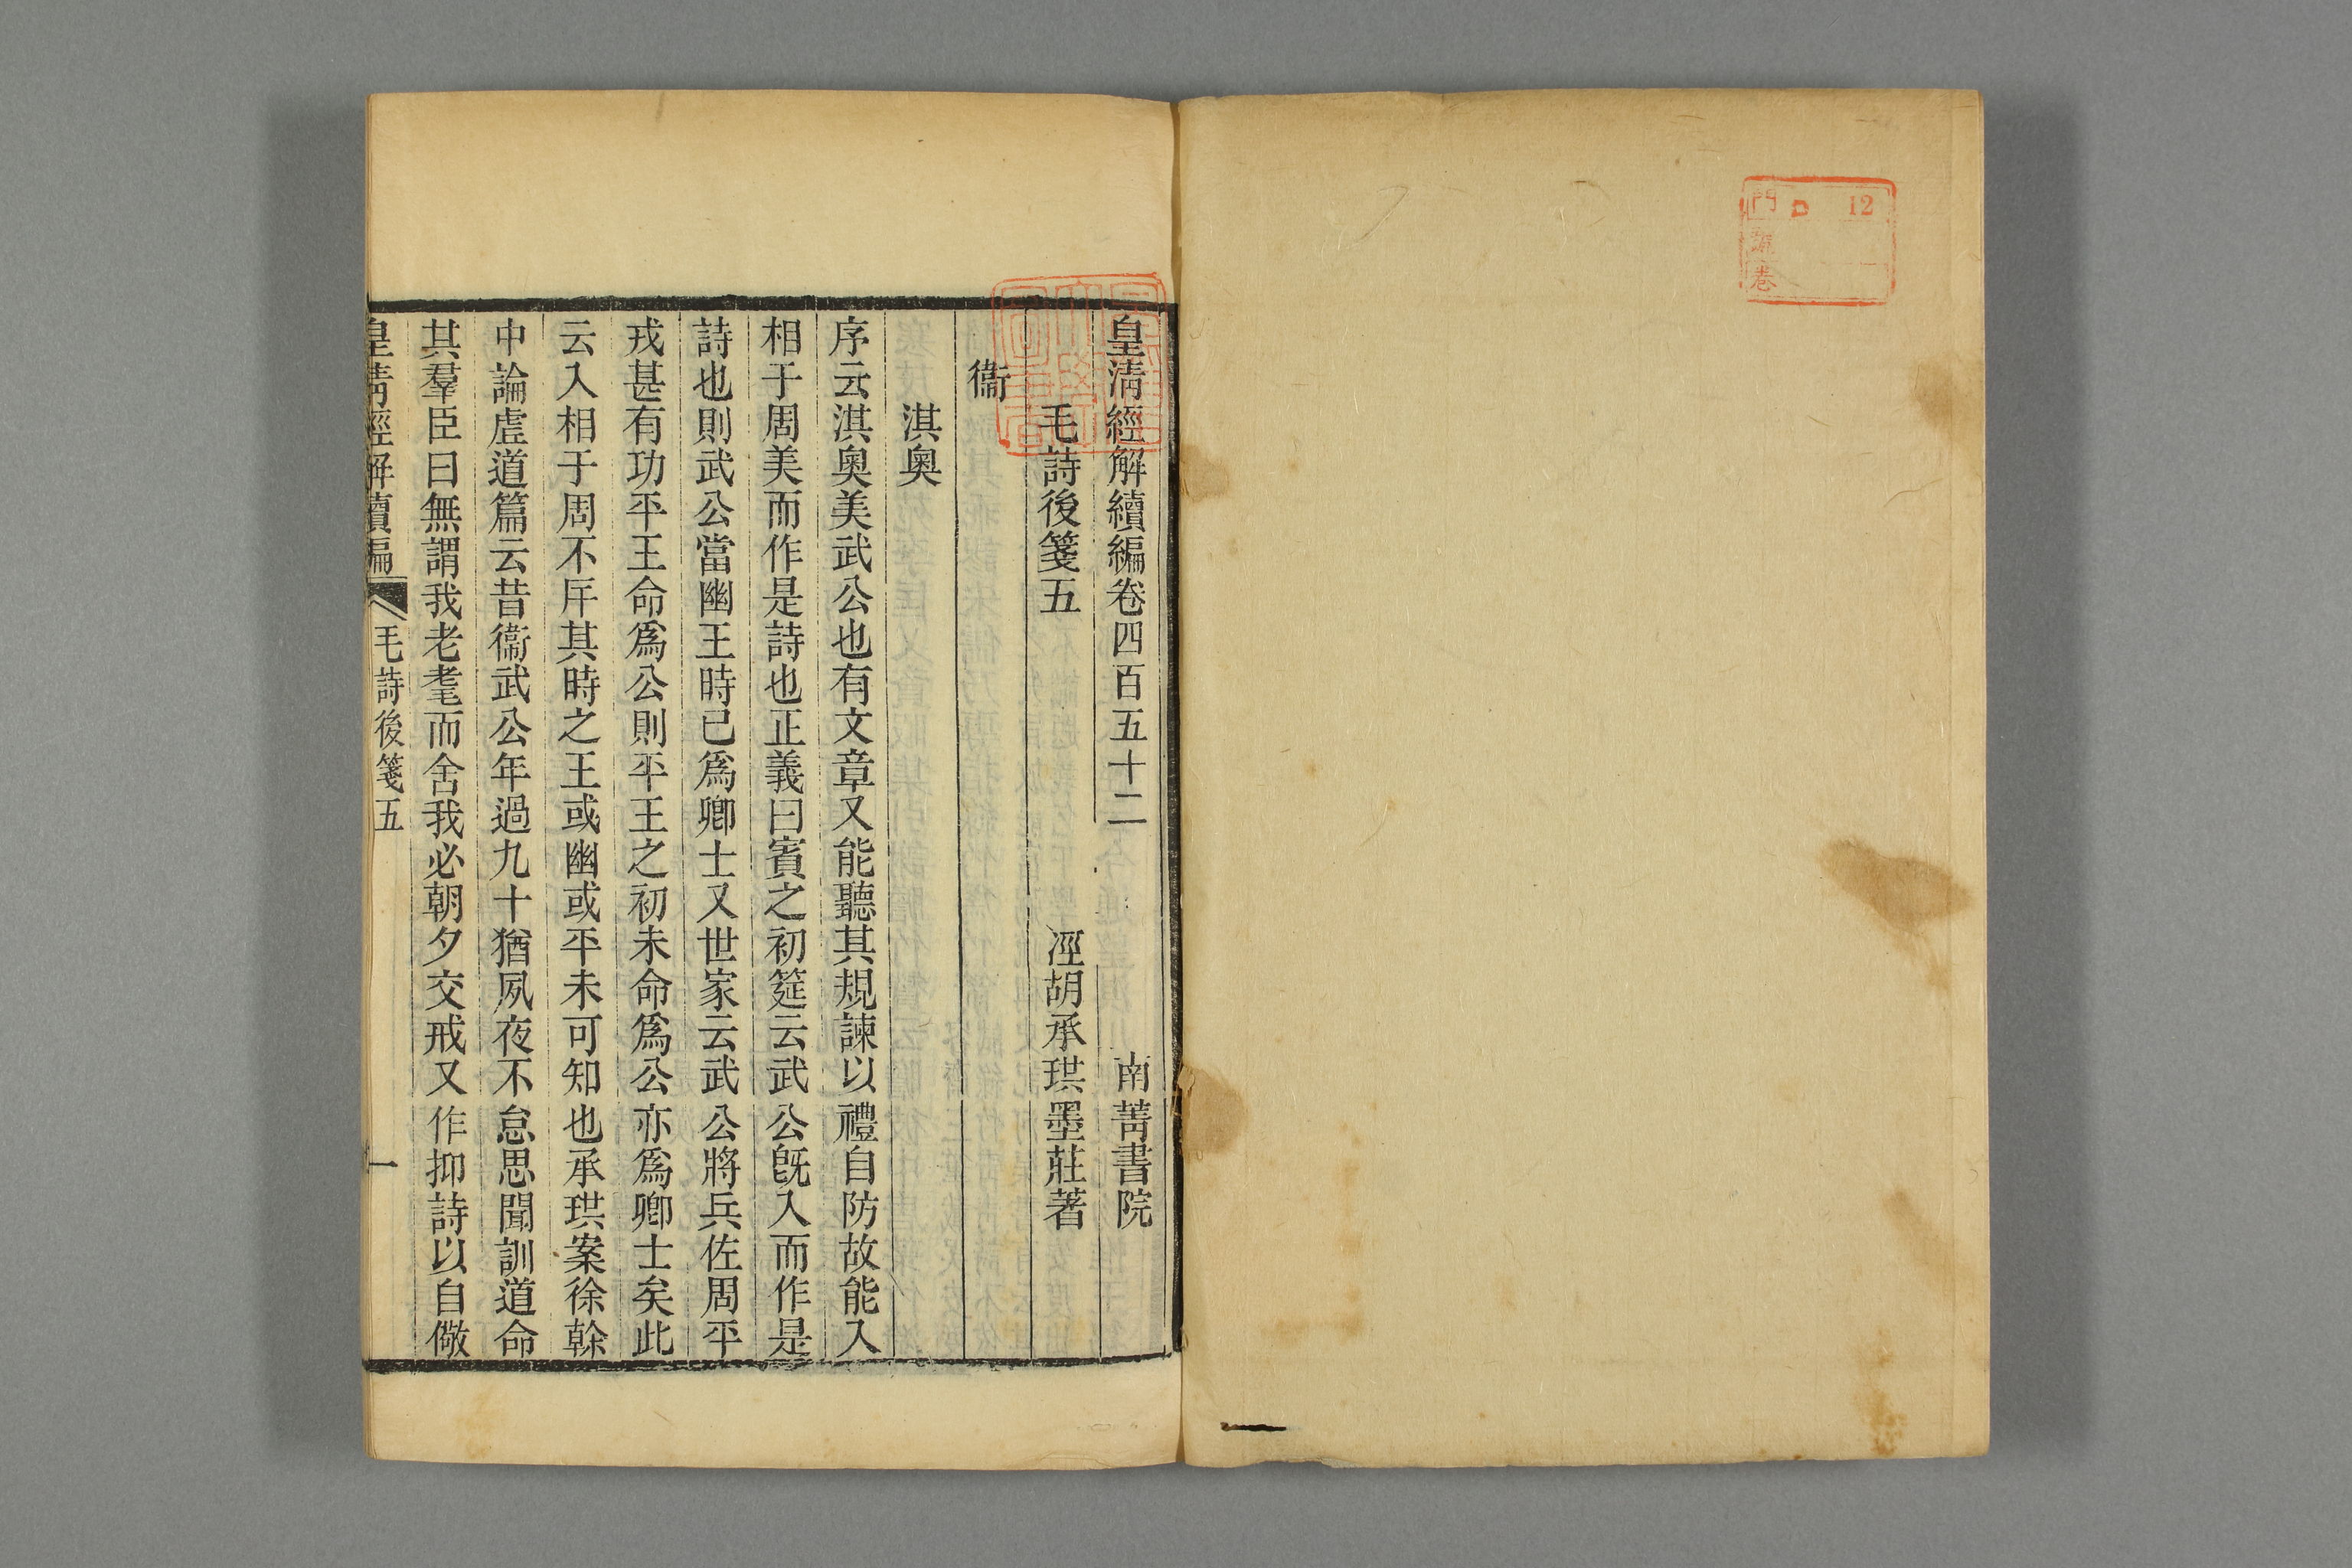 門 D 12
號
卷
皇清經解續編卷四百五十二 南菁書院
毛詩後箋五 涇胡承珙墨莊著
衞
淇奧
序云淇奧美武公也有文章又能聽其規諫以禮自防故能入
相于周美而作是詩也正義曰賓之初筵云武公旣入而作是
詩也則武公當幽王時已爲卿士又世家云武公將兵佐周平
戎甚有功平王命爲公則平王之初未命爲公亦爲卿士矣此
云入相于周不斥其時之王或幽或平未可知也承珙案徐榦
中論虛道篇云昔衞武公年過九十猶夙夜不怠思聞訓道命
其羣臣曰無謂我老耄而舍我必朝夕交戒又作抑詩以自儆
皇清經解續編 毛詩後箋五 一